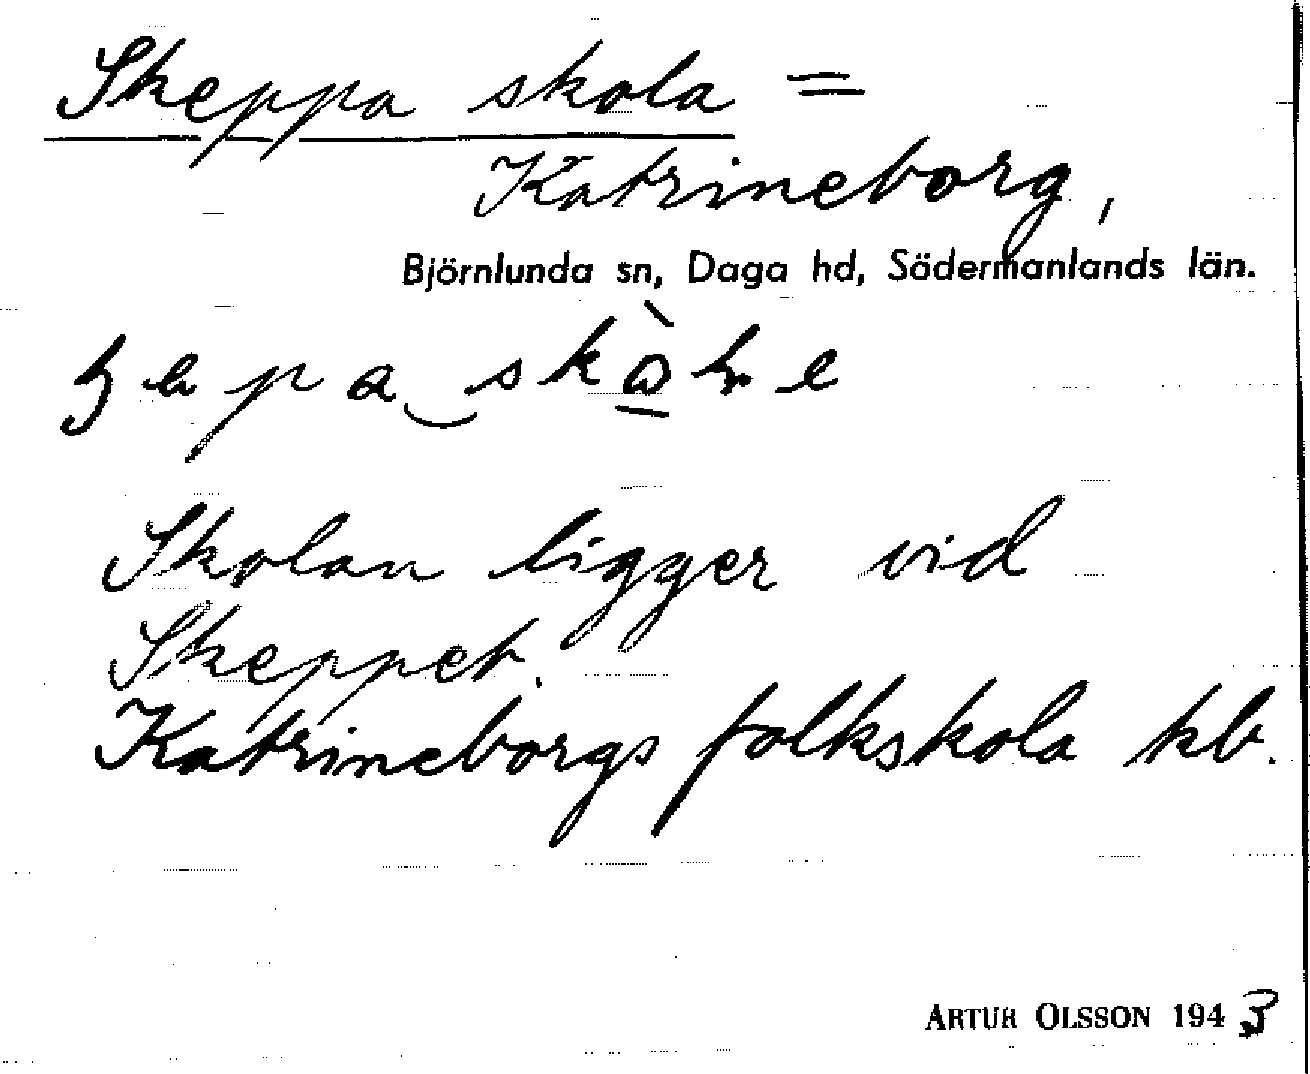 Skeppa skola =
Katrineborg,
Björnlunda sn, Daga hd, Södermanlands län.
Skolan ligger vid
Skeppet.
Katrineborgs folkskola kb.
ARTUR OLSSON 1943